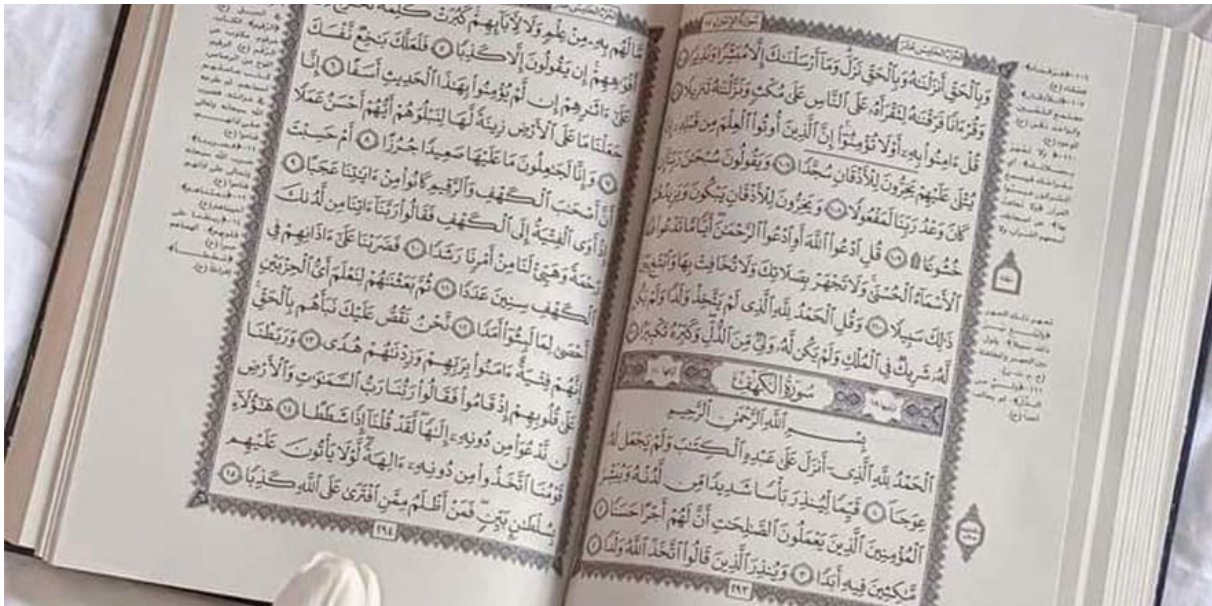 سُورَةُ الإِسْرَاءِ ١٧ الجُزْءُ الخَامِسَ عَشَرَ
وَبِٱلۡحَقِّ أَنزَلۡنَٰهُ وَبِٱلۡحَقِّ نَزَلَۗ وَمَآ أَرۡسَلۡنَٰكَ إِلَّا مُبَشِّرٗا وَنَذِيرٗا ١٠٥
وَقُرۡءَانٗا فَرَقۡنَٰهُ لِتَقۡرَأَهُۥ عَلَى ٱلنَّاسِ عَلَىٰ مُكۡثٖ وَنَزَّلۡنَٰهُ تَنزِيلٗا ١٠٦
قُلۡ ءَامِنُواْ بِهِۦٓ أَوۡ لَا تُؤۡمِنُوٓاْۚ إِنَّ ٱلَّذِينَ أُوتُواْ ٱلۡعِلۡمَ مِن قَبۡلِهِۦٓ إِذَا
يُتۡلَىٰ عَلَيۡهِمۡ يَخِرُّونَۤ لِلۡأَذۡقَانِۤ سُجَّدٗاۤ ١٠٧ وَيَقُولُونَ سُبۡحَٰنَ رَبِّنَآ إِن
كَانَ وَعۡدُ رَبِّنَا لَمَفۡعُولٗا ١٠٨ وَيَخِرُّونَ لِلۡأَذۡقَانِ يَبۡكُونَ وَيَزِيدُهُمۡ
خُشُوعٗا۩ ١٠٩ قُلِ ٱدۡعُواْ ٱللَّهَ أَوِ ٱدۡعُواْ ٱلرَّحۡمَٰنَۖ أَيّٗا مَّا تَدۡعُواْ فَلَهُ
ٱلۡأَسۡمَآءُ ٱلۡحُسۡنَىٰۚ وَلَا تَجۡهَرۡ بِصَلَاتِكَ وَلَا تُخَافِتۡ بِهَا وَٱبۡتَغِ بَيۡنَ
ذَٰلِكَ سَبِيلٗا ١١٠ وَقُلِ ٱلۡحَمۡدُ لِلَّهِ ٱلَّذِي لَمۡ يَتَّخِذۡ وَلَدٗا وَلَمۡ يَكُن
لَّهُۥ شَرِيكٞ فِي ٱلۡمُلۡكِ وَلَمۡ يَكُن لَّهُۥ وَلِيّٞ مِّنَ ٱلذُّلِّۖ وَكَبِّرۡهُ تَكۡبِيرَۢا ١١١
سُورَةُ ٱلۡكَهۡفِ
بِسۡمِ ٱللَّهِ ٱلرَّحۡمَٰنِ ٱلرَّحِيمِ
ٱلۡحَمۡدُ لِلَّهِ ٱلَّذِيٓ أَنزَلَ عَلَىٰ عَبۡدِهِ ٱلۡكِتَٰبَ وَلَمۡ يَجۡعَل لَّهُۥ
عِوَجَاۜ ١ قَيِّمٗا لِّيُنذِرَ بَأۡسٗا شَدِيدٗا مِّن لَّدُنۡهُ وَيُبَشِّرَ
ٱلۡمُؤۡمِنِينَ ٱلَّذِينَ يَعۡمَلُونَ ٱلصَّٰلِحَٰتِ أَنَّ لَهُمۡ أَجۡرًا حَسَنٗا ٢
مَّٰكِثِينَ فِيهِ أَبَدٗا ٣ وَيُنذِرَ ٱلَّذِينَ قَالُواْ ٱتَّخَذَ ٱللَّهُ وَلَدٗا ٤
٢٩٣
مَّا لَهُم بِهِۦ مِنۡ عِلۡمٖ وَلَا لِأٓبَآئِهِمۡۚ كَبُرَتۡ كَلِمَةٗ تَخۡرُجُ مِنۡ
أَفۡوَٰهِهِمۡۚ إِن يَقُولُونَ إِلَّا كَذِبٗا ٥ فَلَعَلَّكَ بَٰخِعٞ نَّفۡسَكَ
عَلَىٰٓ ءَاثَٰرِهِمۡ إِن لَّمۡ يُؤۡمِنُواْ بِهَٰذَا ٱلۡحَدِيثِ أَسَفًا ٦ إِنَّا
جَعَلۡنَا مَا عَلَى ٱلۡأَرۡضِ زِينَةٗ لَّهَا لِنَبۡلُوَهُمۡ أَيُّهُمۡ أَحۡسَنُ عَمَلٗا
٧ وَإِنَّا لَجَٰعِلُونَ مَا عَلَيۡهَا صَعِيدٗا جُرُزًا ٨ أَمۡ حَسِبۡتَ
أَنَّ أَصۡحَٰبَ ٱلۡكَهۡفِ وَٱلرَّقِيمِ كَانُواْ مِنۡ ءَايَٰتِنَا عَجَبًا ٩
إِذۡ أَوَى ٱلۡفِتۡيَةُ إِلَى ٱلۡكَهۡفِ فَقَالُواْ رَبَّنَآ ءَاتِنَا مِن لَّدُنكَ
رَحۡمَةٗ وَهَيِّئۡ لَنَا مِنۡ أَمۡرِنَا رَشَدٗا ١٠ فَضَرَبۡنَا عَلَىٰٓ ءَاذَانِهِمۡ فِي
ٱلۡكَهۡفِ سِنِينَ عَدَدٗا ١١ ثُمَّ بَعَثۡنَٰهُمۡ لِنَعۡلَمَ أَيُّ ٱلۡحِزۡبَيۡنِ
أَحۡصَىٰ لِمَا لَبِثُوٓاْ أَمَدٗا ١٢ نَّحۡنُ نَقُصُّ عَلَيۡكَ نَبَأَهُم بِٱلۡحَقِّۚ
إِنَّهُمۡ فِتۡيَةٌ ءَامَنُواْ بِرَبِّهِمۡ وَزِدۡنَٰهُمۡ هُدٗى ١٣ وَرَبَطۡنَا
عَلَىٰ قُلُوبِهِمۡ إِذۡ قَامُواْ فَقَالُواْ رَبُّنَا رَبُّ ٱلسَّمَٰوَٰتِ وَٱلۡأَرۡضِ
لَن نَّدۡعُوَاْ مِن دُونِهِۦٓ إِلَٰهٗاۖ لَّقَدۡ قُلۡنَآ إِذٗا شَطَطًا ١٤ هَٰٓؤُلَآءِ
قَوۡمُنَا ٱتَّخَذُواْ مِن دُونِهِۦٓ ءَالِهَةٗۖ لَّوۡلَا يَأۡتُونَ عَلَيۡهِم
بِسُلۡطَٰنِۭ بَيِّنٖۖ فَمَنۡ أَظۡلَمُ مِمَّنِ ٱفۡتَرَىٰ عَلَى ٱللَّهِ كَذِبٗا ١٥
٢٩٤